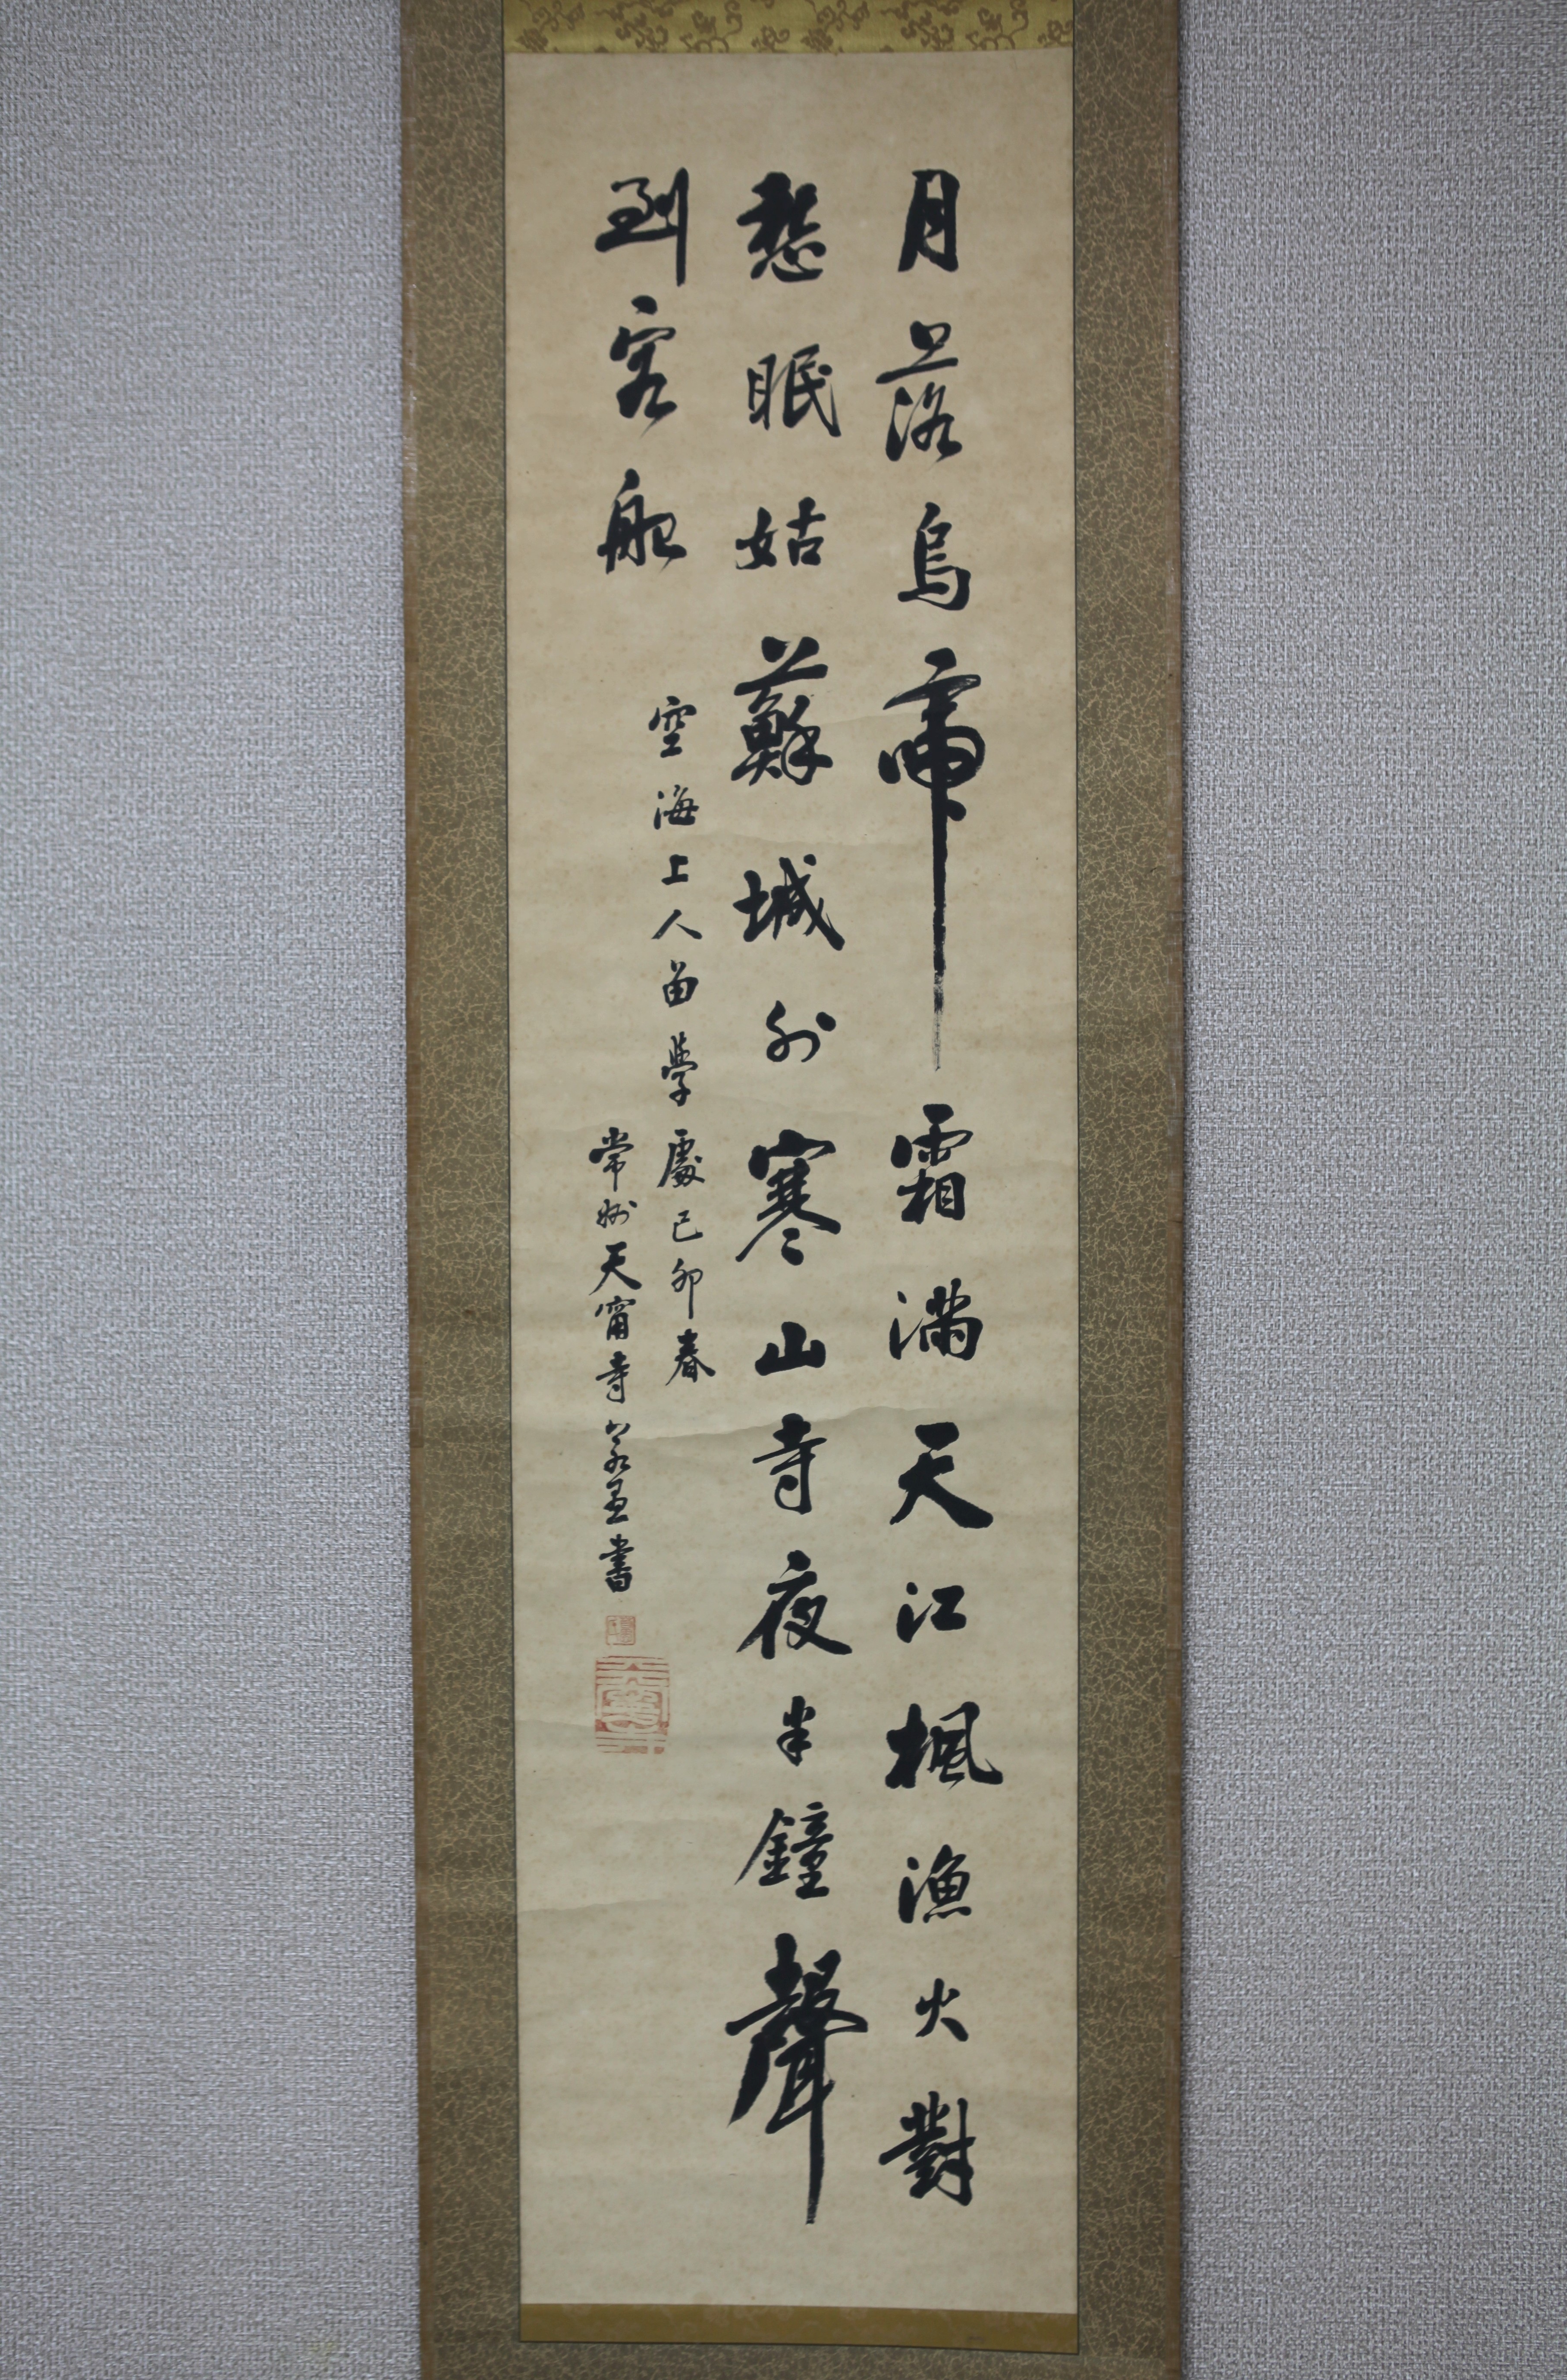 月落烏啼霜滿天江楓漁火對
愁眠姑蘇城外寒山寺夜半鐘聲
到客船
空海上人留學處己卯春
常州天甯寺 書